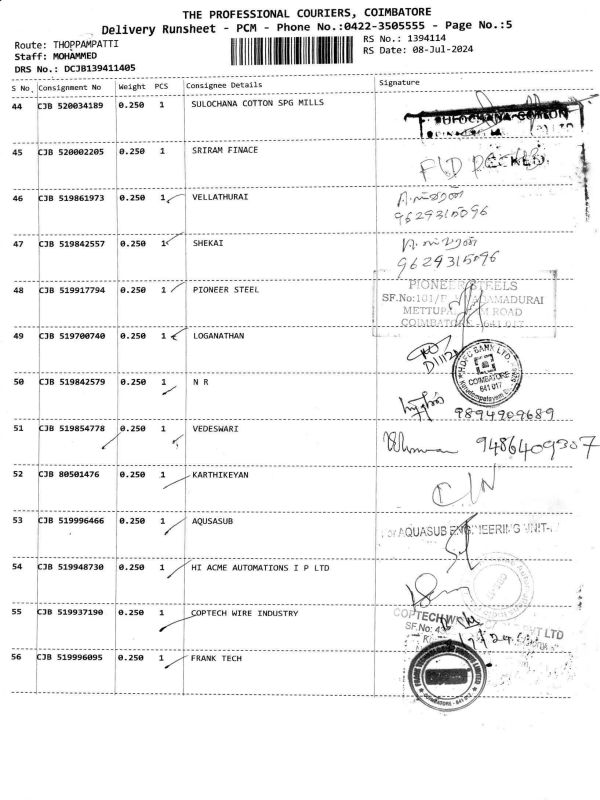 THE PROFESSIONAL COURIERS, COIMBATORE
Delivery Runsheet - PCM - Phone No.:0422-3505555 - Page No.:5
Route: THOPPAMPATTI
RS No.: 1394114
Staff: MOHAMMED
RS Date: 08-Jul-2024
DRS No.: DCJB139411405
S No. Consignment No Weight PCS Consignee Details Signature
44 CJB 520034189 0.250 1 SULOCHANA COTTON SPG MILLS
SULOCHANA COTTON
45 CJB 520002205 0.250 1 SRIRAM FINACE
46 CJB 519861973 0.250 1 VELLATHURAI
9629315096
47 CJB 519842557 0.250 1 SHEKAI
9629315096
48 CJB 519917794 0.250 1 PIONEER STEEL
PIONEER STEELS
SF.No:101/
METTUPA ROAD
COIMBATORE - 641 017
49 CJB 519700740 0.250 1 LOGANATHAN
HDFC BANK LTD.
COIMBATORE
641 017
50 CJB 519842579 0.250 1 N R
9894909689
51 CJB 519854778 0.250 1 VEDESWARI
9486409307
52 CJB 80501476 0.250 1 KARTHIKEYAN
53 CJB 519996466 0.250 1 AQUSASUB
For AQUASUB ENGINEERING UNIT-
54 CJB 519948730 0.250 1 HI ACME AUTOMATIONS I P LTD
55 CJB 519937190 0.250 1 COPTECH WIRE INDUSTRY
COPTECH PVT LTD
SF.No:
56 CJB 519996095 0.250 1 FRANK TECH